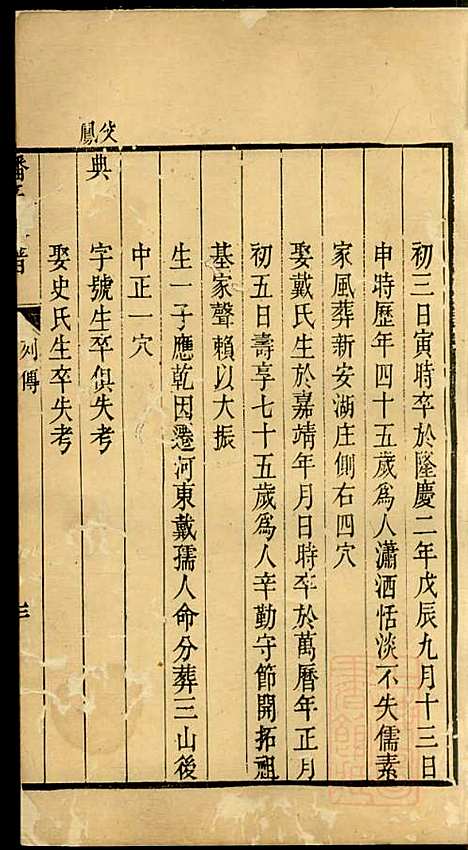 初三日寅時卒於隆慶二年戊辰九月十三日
申時歷年四十五歲為人瀟洒恬淡不失儒素
家風葬新安湖庄側右四穴
娶戴氏生於嘉靖年月日時卒於萬曆年正月
初五日壽享七十五歲為人辛勤守節開拓祖
基家聲賴以大振
生一子應乾因遷河東戴孺人命分葬三山後
中正一穴
父鳳
典
字號生卒俱失考
娶史氏生卒失考
譜
列傳
三